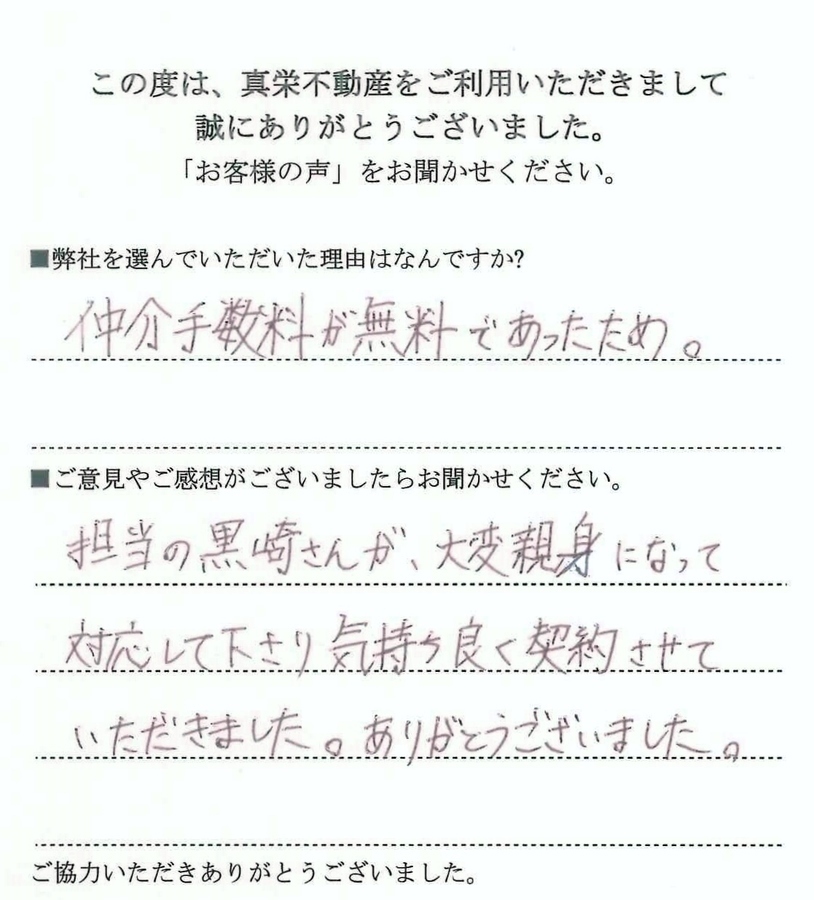 この度は、真栄不動産をご利用いただきまして
誠にありがとうございました。
「お客様の声」をお聞かせください。
■弊社を選んでいただいた理由はなんですか?
仲介手数料が無料であったため。
■ご意見やご感想がございましたらお聞かせください。
担当の黒崎さんが、大変親身になって
対応して下さり気持ち良く契約させて
いただきました。ありがとうございました。
ご協力いただきありがとうございました。